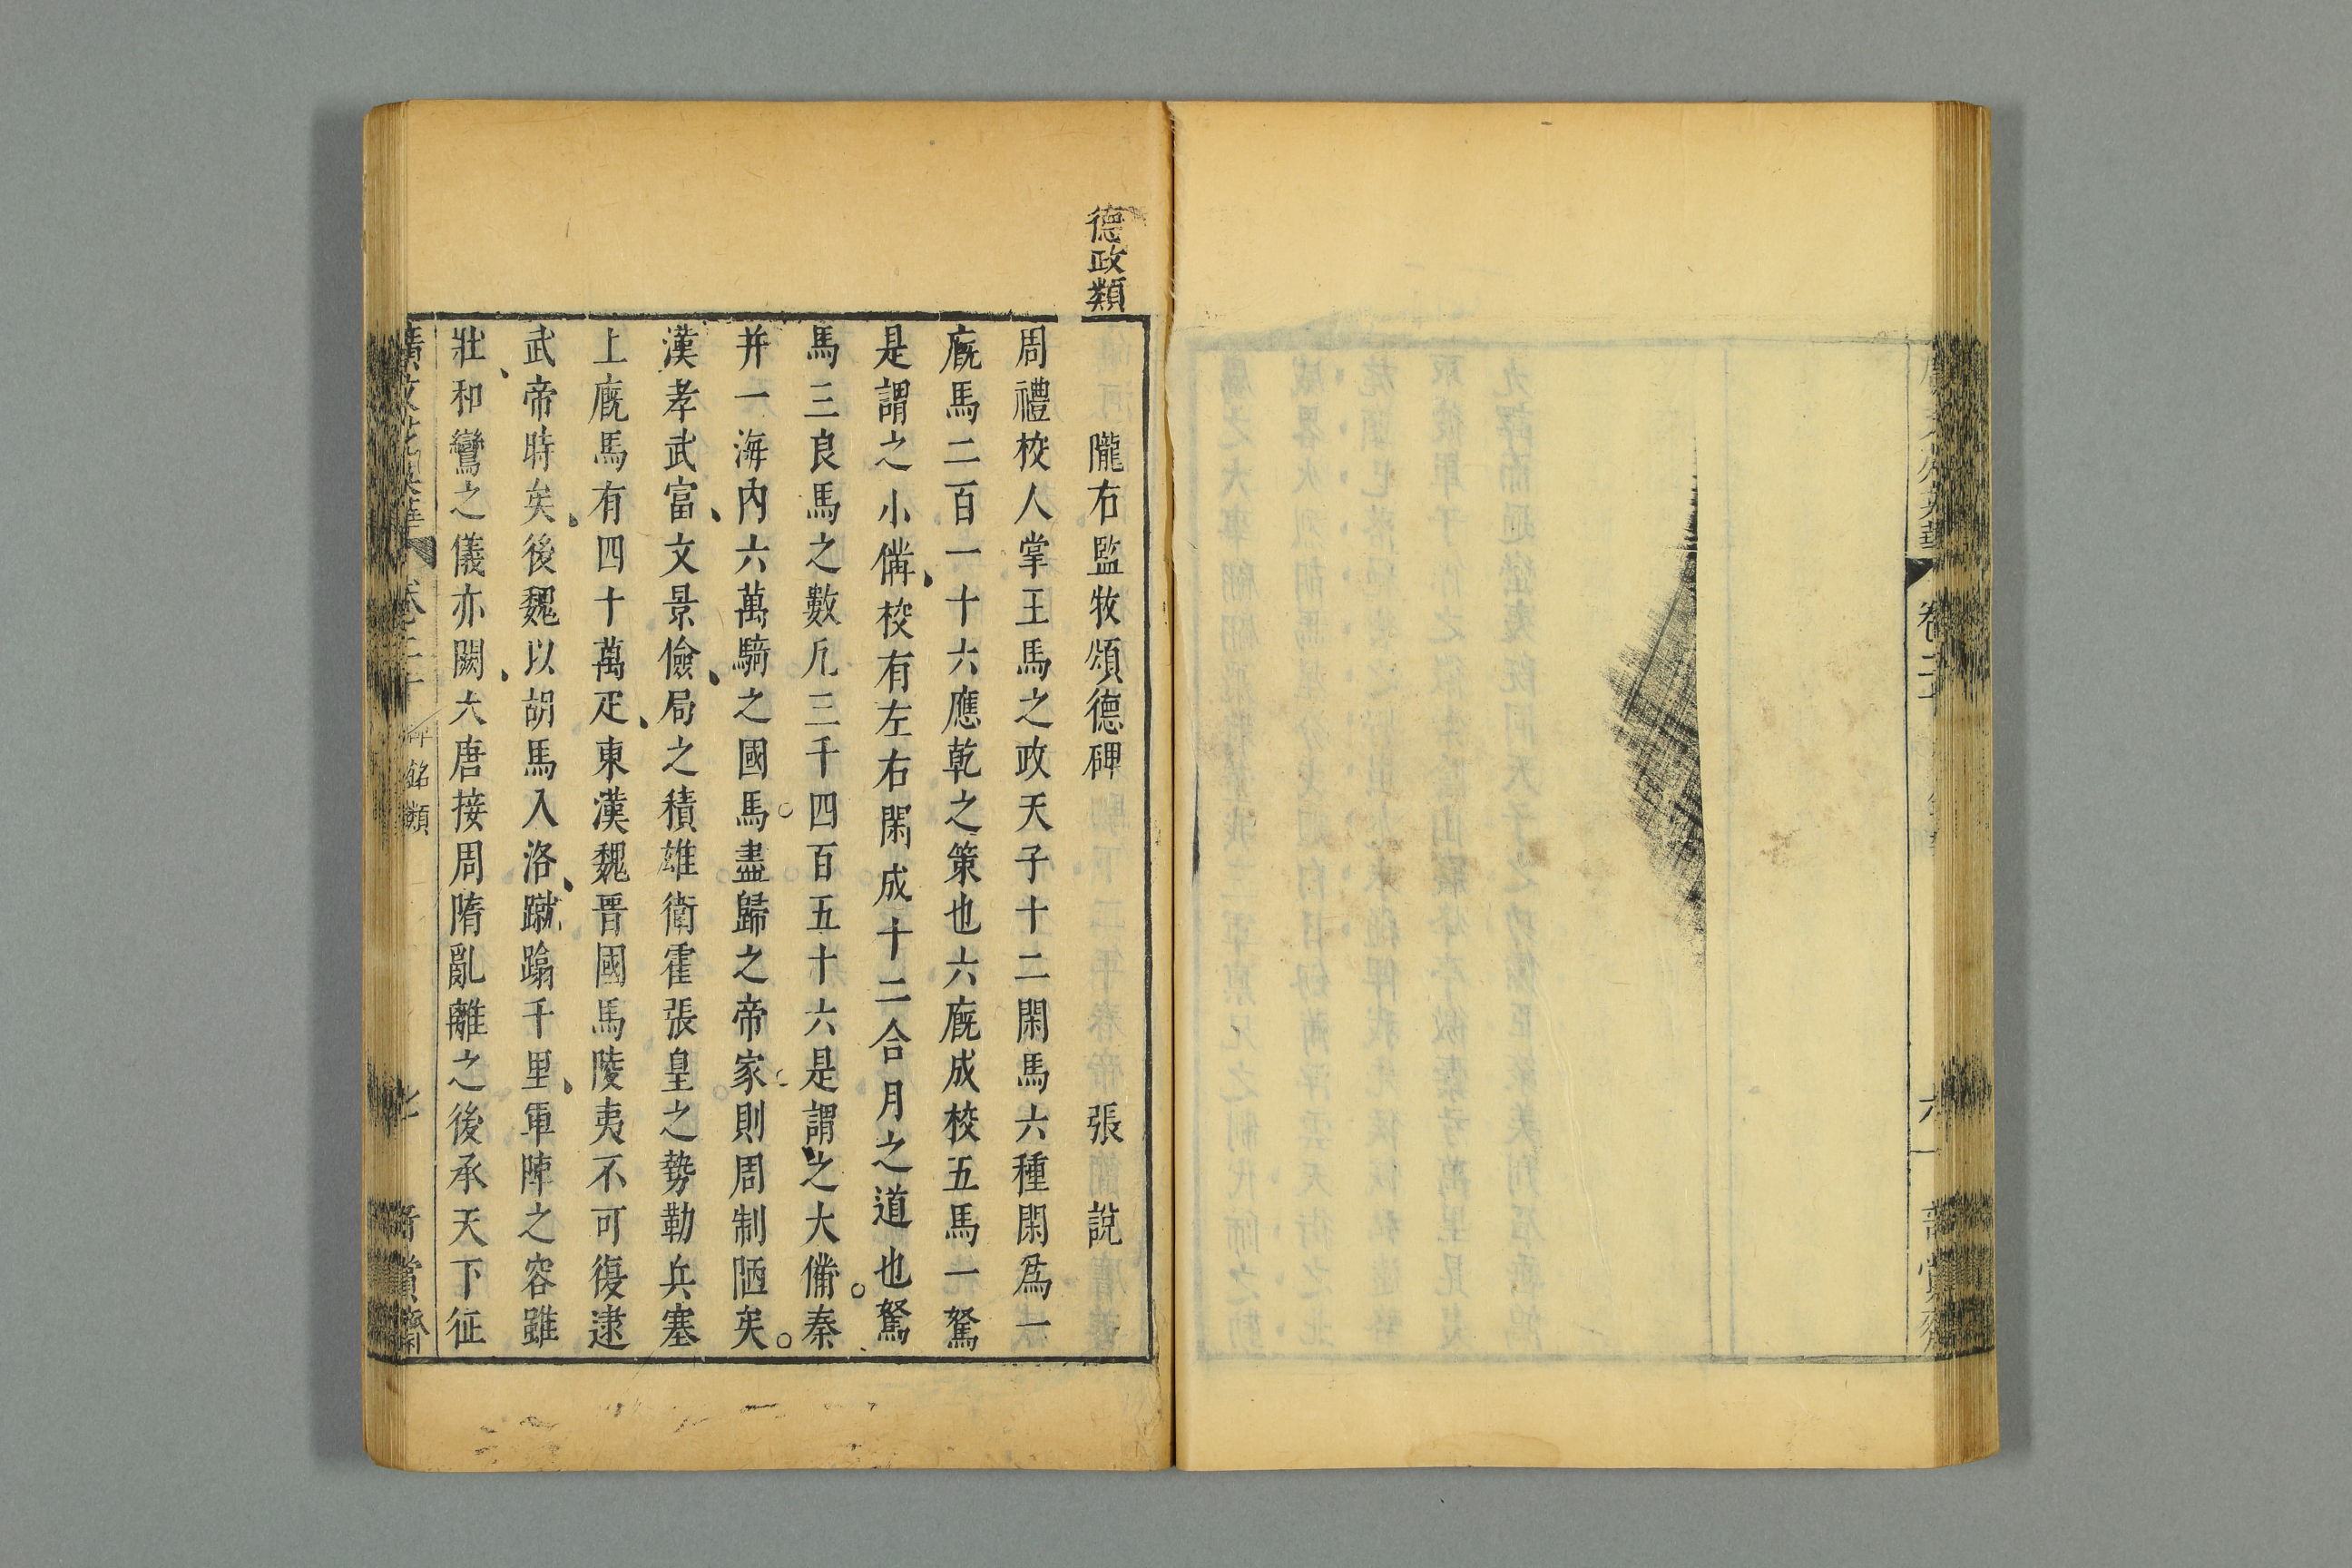 德政類
隴右監牧頌德碑　張　說
周禮校人掌王馬之政天子十二閑馬六種閑爲一
廐馬二百一十六應乾之策也六廐成校五馬一駑
是謂之小備校有左右閑成十二合月之道也駑
馬三良馬之數凢三千四百五十六是謂之大備秦
并一海内六萬騎之國馬盡歸之帝家則周制陋矣
漢孝武富文景儉局之積雄衛霍張皇之勢勒兵塞
上廐馬有四十萬疋東漢魏晋國馬陵夷不可復逮
武帝時矣後魏以胡馬入洛蹴蹹千里軍陣之容雖
壯和鸞之儀亦闕大唐接周隋亂離之後承天下征
廣文苑英華　卷二十　碑銘類　七　奇賞齋